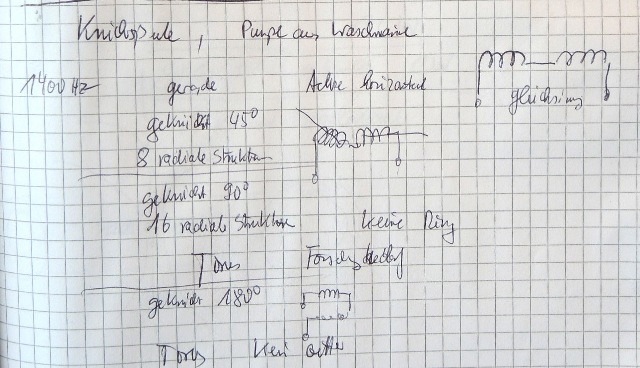 Knickspule, Pumpe aus Waschmaschine
1400 Hz gerade Achse horizontal
gleichsinnig
geknickt 45°
8 radiale Strukturen
geknickt 90°
16 radiale Strukturen keine Ring
Torus
geknickt 180°
Torus kein